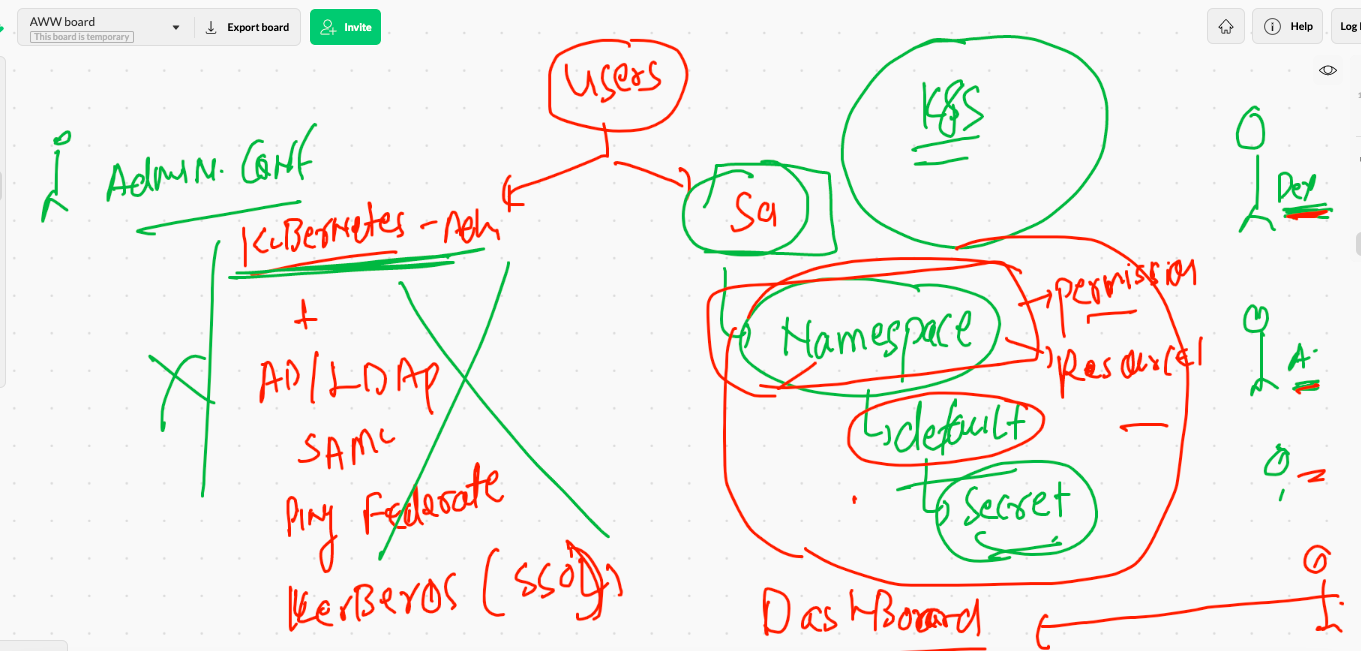 AWW board
This board is temporary
Export board
Invite
Help
Log
Users
K8s
Admin. Conf
Kubernetes - Adm
Sa
Dev
+
AD/LDAP
SAML
Ping Federate
KerBeros (SSO)
Namespace
permission
Resources
default
Secret
A.
DashBoard